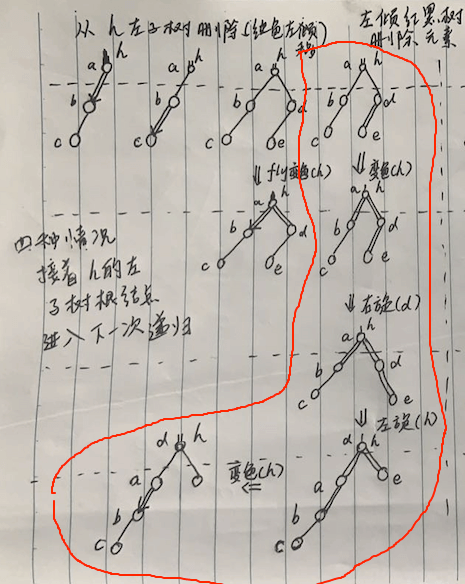 从 h 左子树删除(红色左倾
移)
左倾红黑树
删除元素
a h
b
c
a h
b
c
a h
b d
c e
a h
b d
c e
⇓ fly变色(h)
⇓ 变色(h)
a h
b d
c e
a h
b d
c e
四种情况
接着 h的左
子树根结点
进入下一次递归
⇓ 右旋(d)
a h
b d
c e
⇓ 左旋(h)
d h
a
b
c
变色(h)
⇐
d h
a e
b
c